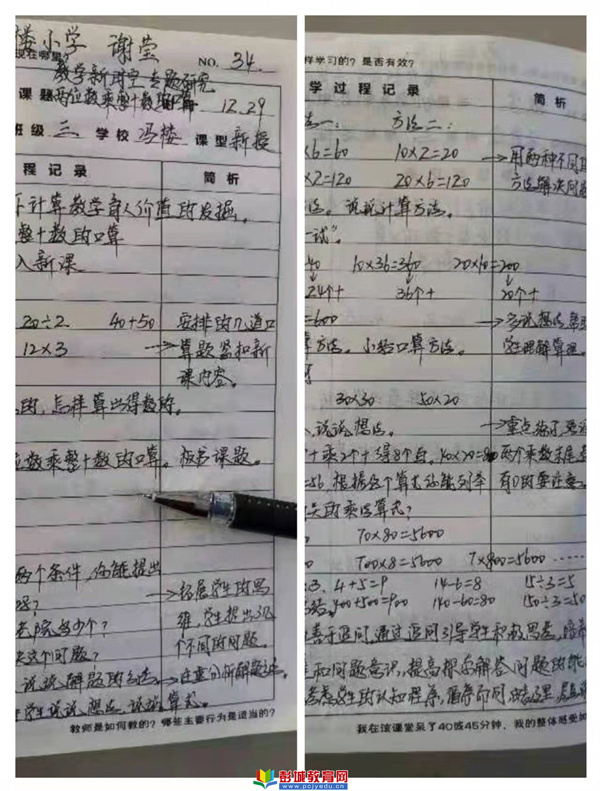 楼小学 谢莹
现在哪里?
NO. 34.
教学新时空专题研究
课题 两位数乘整十数的口算 12.29
班级 三 学校 冯楼 课型 新授
程记录 简析
计算教学育人价值的发掘。
整十数的口算
入新课
20÷2 40+50 安排的几道口
12×3 →算题紧扣新
课内容。
的,怎样算出得数的。
位数乘整十数的口算。板书课题。
两个条件,你能提出
吗? →拓展学生的思
多少个? 维,学生提出
决这个问题? 个不同的问题。
说说解题的方法。→注重分析解题
学生说说想法,说说算式。
教师是如何教的?师生主要行为是适当的?
样学习的?是否有效?
学过程记录 简析
法一: 方法二:
×6=60 10×2=20 →用两种不同
×2=120 20×6=120 方法解决问题
法。说说计算方法。
一试”。
40 10×36=360 20×10=200
24个十 36个十 20个十
=600 →多说想法,帮
算方法。小结口算方法。 学生理解算理。
30×30 50×20
,说说想法。 →重点
十乘2个十得8个百。40×20=80 两个乘数末尾
=56,根据这个算式你能列举 有0的要注意。
的乘法算式?
70×80=5600
700×8=5600 7×800=5600 ……
3. 4+5=9 14-6=8 15÷3=5
400+500=900 140-60=80 150÷3=50
善于追问,通过追问引导学生积极思考,培养
和问题意识,提高探索解答问题的能
我在该课堂呆了40或45分钟,我的整体感受如
彭城教育网
www.pcjyedu.cn